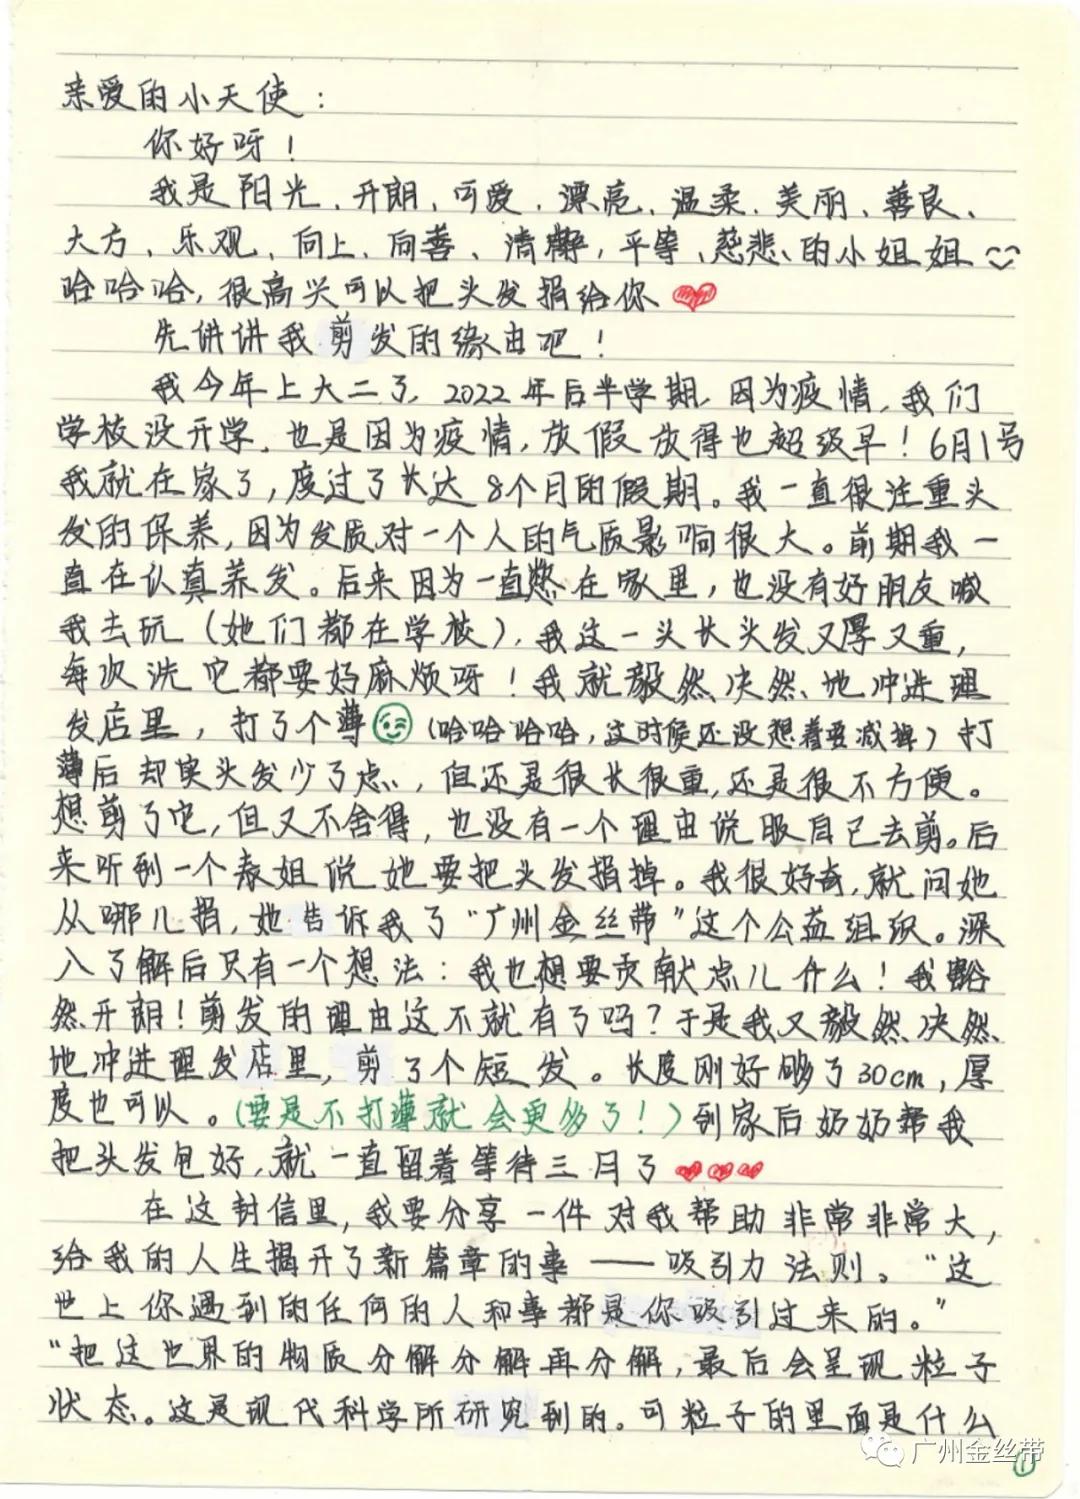 亲爱的小天使:
你好呀!
我是阳光、开朗、可爱、漂亮、温柔、美丽、善良、
大方、乐观、向上、向善、清静,平等、慈悲、的小姐姐
哈哈哈,很高兴可以把头发捐给你
先讲讲我剪发的缘由吧!
我今年上大二了,2022年后半学期,因为疫情,我们
学校没开学,也是因为疫情,放假放得也超级早!6月1号
我就在家了,度过了长达8个月的假期。我一直很注重头
发的保养,因为发质对一个人的气质影响很大。前期我一
直在认真养发。后来因为一直在家里,也没有好朋友喊
我去玩(她们都在学校),我这一头长头发又厚又重,
每次洗它都要好麻烦呀!我就毅然决然地冲进理
发店里,打了个薄(哈哈哈哈,这时候还没想着要减掉)打
薄后却实头发少了点,但还是很长很重,还是很不方便。
想剪了它,但又不舍得,也没有一个理由说服自己去剪。后
来听到一个表姐说她要把头发捐掉。我很好奇,就问她
从哪儿捐,她告诉我了“广州金丝带”这个公益组织。深
入了解后只有一个想法:我也想要贡献点儿什么!我豁
然开朗!剪发的理由这不就有了吗?于是我又毅然决然
地冲进理发店里,剪了个短发。长度刚好够了30cm,厚
度也可以。(要是不打薄就会更多了!)到家后奶奶帮我
把头发包好,就一直留着等待三月了
在这封信里,我要分享一件对我帮助非常非常大,
给我的人生揭开了新篇章的事——吸引力法则。“这
世上你遇到的任何的人和事都是你吸引过来的。”
“把这世界的物质分解分解再分解,最后会呈现粒子
状态。这是现代科学所研究到的。可粒子的里面是什么
广州金丝带
1